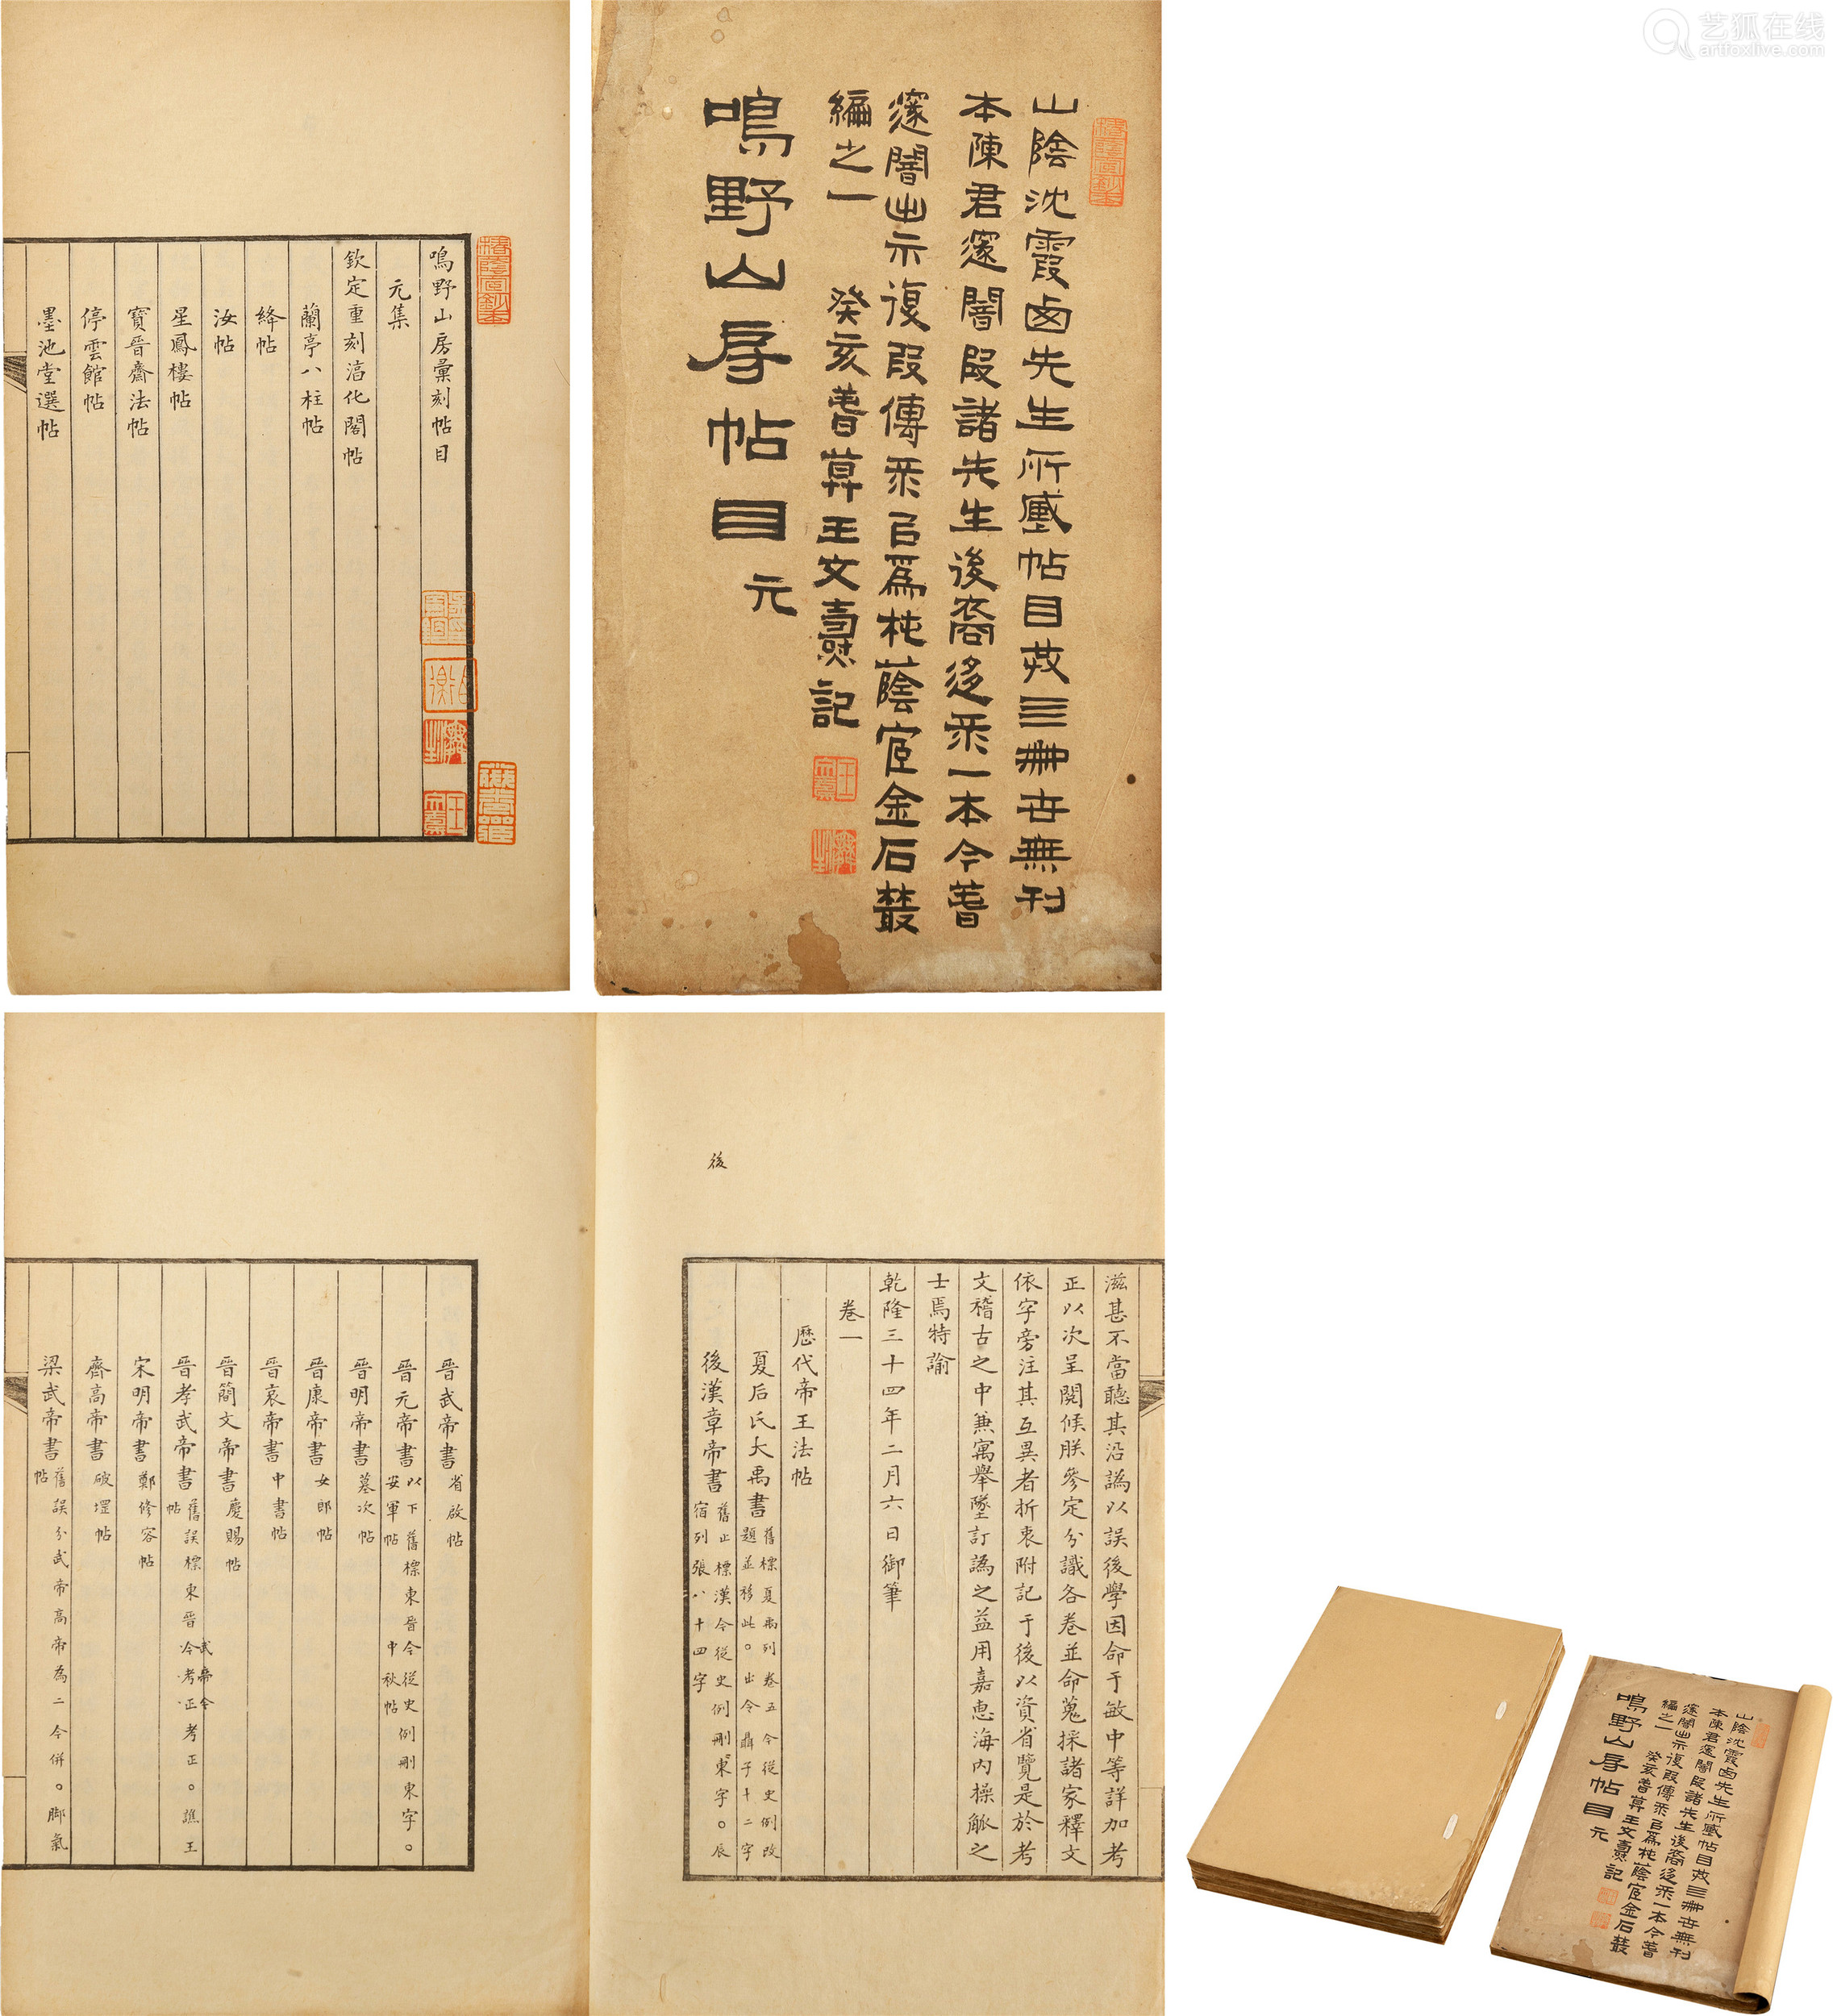 艺狐在线
artfoxlive.com
山陰沈霞西先生所臧帖目共三冊世無刊
本陳君邃闇段諸先生後裔迻來一本今春
邃闇出示復叚傳來㠯爲杶蔭宧金石叢
編之一 癸亥春莫王文燾記
鳴野山房帖目 元
鳴野山房彙刻帖目
元集
欽定重刻淳化閣帖
蘭亭八柱帖
絳帖
汝帖
星鳳樓帖
寶晉齋法帖
停雲館帖
墨池堂選帖
後
滋甚不當聽其沿譌以誤後學因命于敏中等詳加考
正以次呈閱候朕參定分識各卷並命蒐採諸家釋文
依字旁注其互異者折衷附記于後以資省覽是於考
文稽古之中兼寓舉墜訂譌之益用嘉惠海內操觚之
士焉特諭
乾隆三十四年二月六日御筆
卷一
歷代帝王法帖
夏后氏大禹書 舊標夏禹列卷五今從史例改
題並移此。出令聶子十二字
後漢章帝書 舊止標漢今從史例刪東字。辰
宿列張八十四字
晉武帝書 省啟帖
晉元帝書 以下舊標東晉今從史例刪東字。
安軍帖 中秋帖
晉明帝書 墓次帖
晉康帝書 女郎帖
晉哀帝書 中書帖
晉簡文帝書 慶賜帖
晉孝武帝書 舊誤標東晉武帝今今考正考正。譙王
帖
宋明帝書 鄭修容帖
齊高帝書 破堽帖
梁武帝書 舊誤分武帝高帝為二今併。腳氣
帖
山陰沈霞西先生所臧帖目共三冊世無刊
本陳君邃闇段諸先生後裔迻來一本今春
邃闇出示復叚傳來㠯爲杶蔭宧金石叢
編之一 癸亥春莫王文燾記
鳴野山房帖目 元